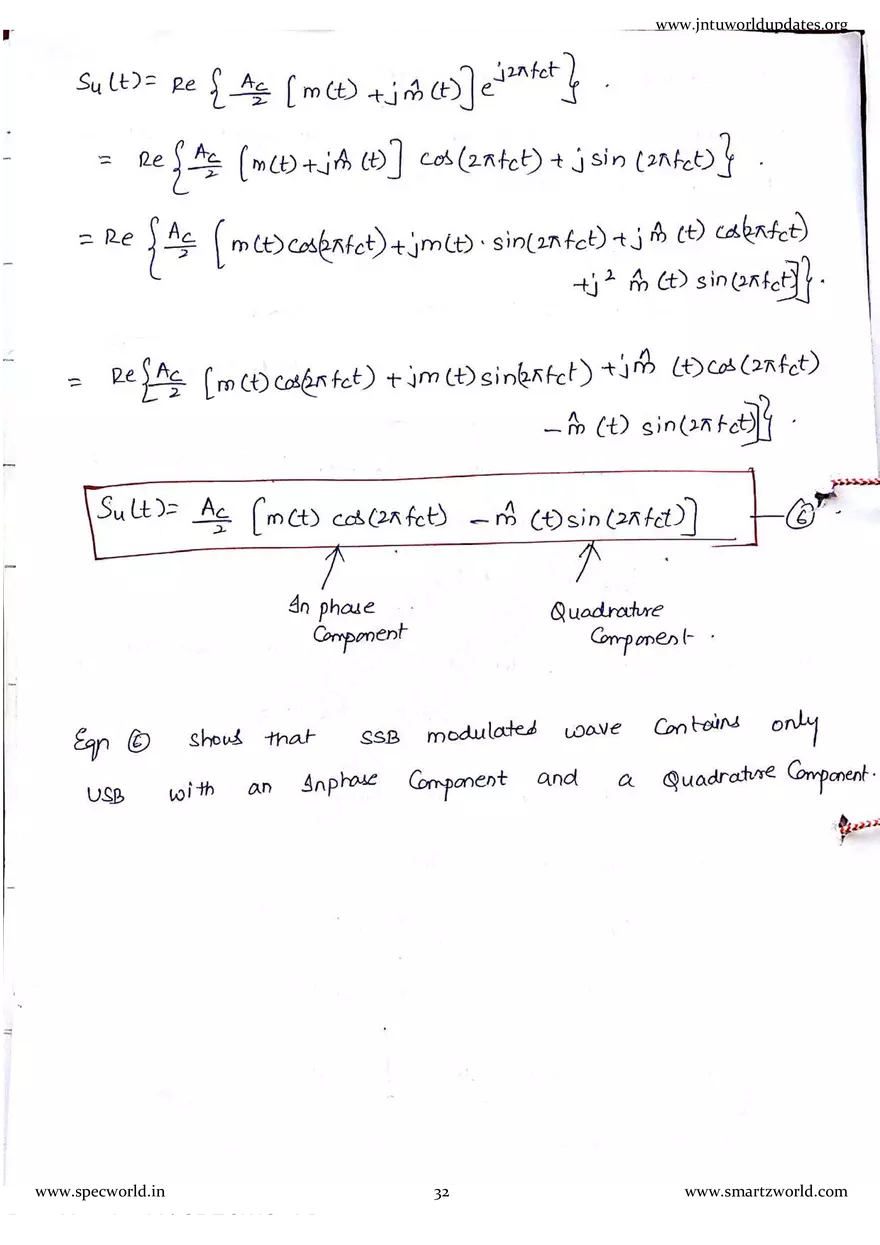 www.jntuworldupdates.org
Su(t) = Re { Ac/2 [m(t) + jm̂(t)] e^j2πfct } .
= Re { Ac/2 [m(t) + jm̂(t)] cos(2πfct) + j sin(2πfct) } .
= Re { Ac/2 [ m(t) cos(2πfct) + jm(t) · sin(2πfct) + j m̂(t) cos(2πfct)
+j² m̂(t) sin(2πfct)]} .
= Re { Ac/2 [m(t) cos(2πfct) + jm(t) sin(2πfct) + jm̂(t) cos(2πfct)
− m̂(t) sin(2πfct)]} .
Su(t) = Ac/2 [m(t) cos(2πfct) − m̂(t) sin(2πfct)] — ⑥
In phase Quadrature
Component Component .
Eqn ⑥ shows that SSB modulated wave contains only
USB with an Inphase Component and a Quadrature Component.
www.specworld.in 32 www.smartzworld.com